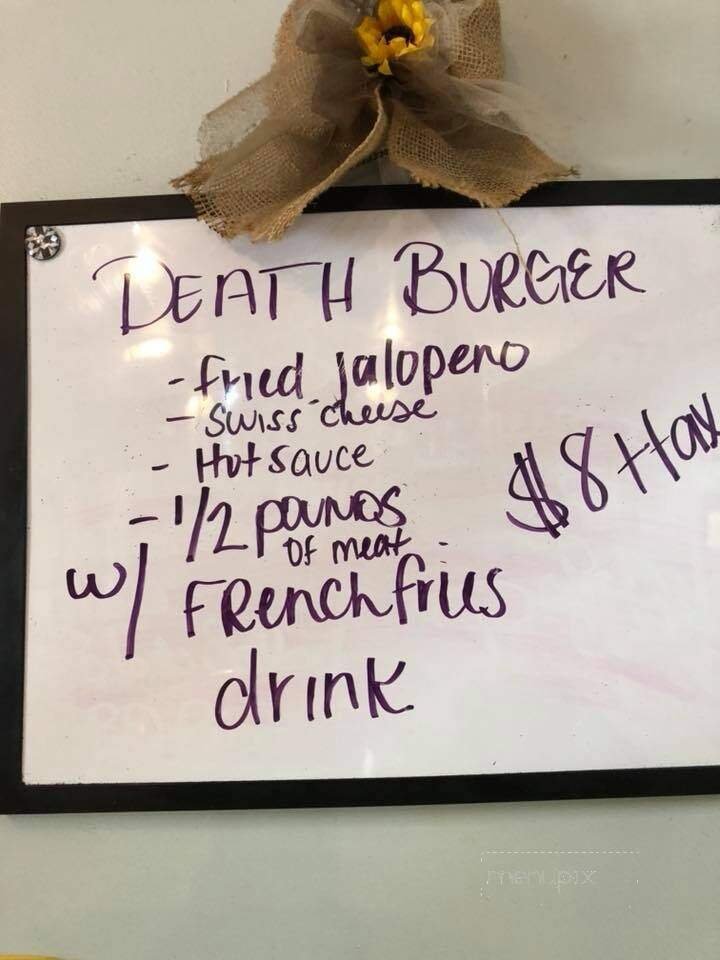 DEATH BURGER
- fried jalopeno
- swiss cheese
- Hot sauce
$8+tax
- 1/2 pounds
of meat
w/ FRENCH fries
drink
menupix